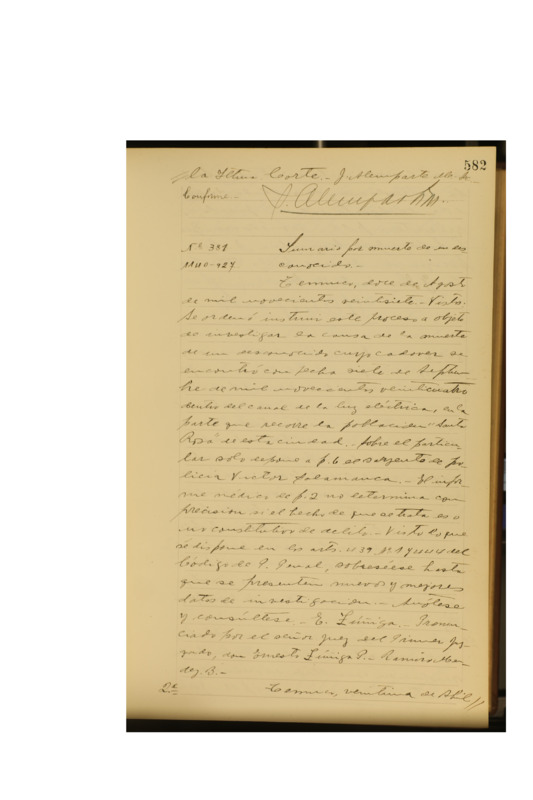 582
la Iltma Corte.- J. Alemparte
Conforme.-
Nº 381 Sumario por muerto de un des
11110-927 conocido.-
Temuco, doce de Agosto
de mil novecientos veintisiete.- Vistos:
Se ordenó instruir este proceso a objeto
de investigar la causa de la muerte
de un desconocido cuyo cadáver se
encontró con fecha siete de Septiem
bre de mil novecientos veinticuatro
dentro del canal de la luz eléctrica, en la
parte que recorre la población "Santa
Rosa" de esta ciudad.. Sobre el particu
lar sólo depone a f. 6 el sargento de po-
licía Victor Salamanca.- El infor-
me médico de f. 2 no determina con
precisión si el hecho de que se trata es o
no constitutivo de delito.- Visto lo que
se dispone en los arts. 439 del
Código de P. Penal, sobreséese hasta
que se presenten nuevos y mejores
datos de investigación.- Anótese
y consúltese.- E. Zúñiga.- Pronun-
ciado por el señor juez del Primer Juz
gado, don Ernesto Zúñiga P.- Ramiro
dez B.-
2ª Temuco, veintiuno de Abril